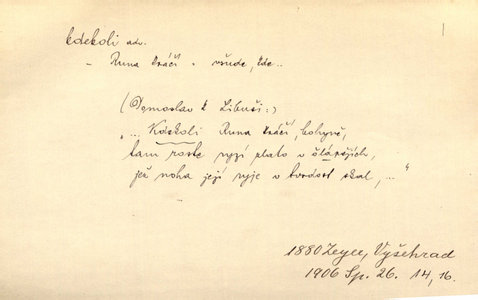 kdekoli adv.
– Runa kráčí – všude, kde..
(Domoslav k Libuši:)
„... Kdekoli Runa kráčí, bohyně,
tam roste ryzí zlato v šlápějích,
jež noha její ryje v tvrdost skal, ..."
1880 Zeyer, Vyšehrad
1906 Sp. 26. 14, 16.